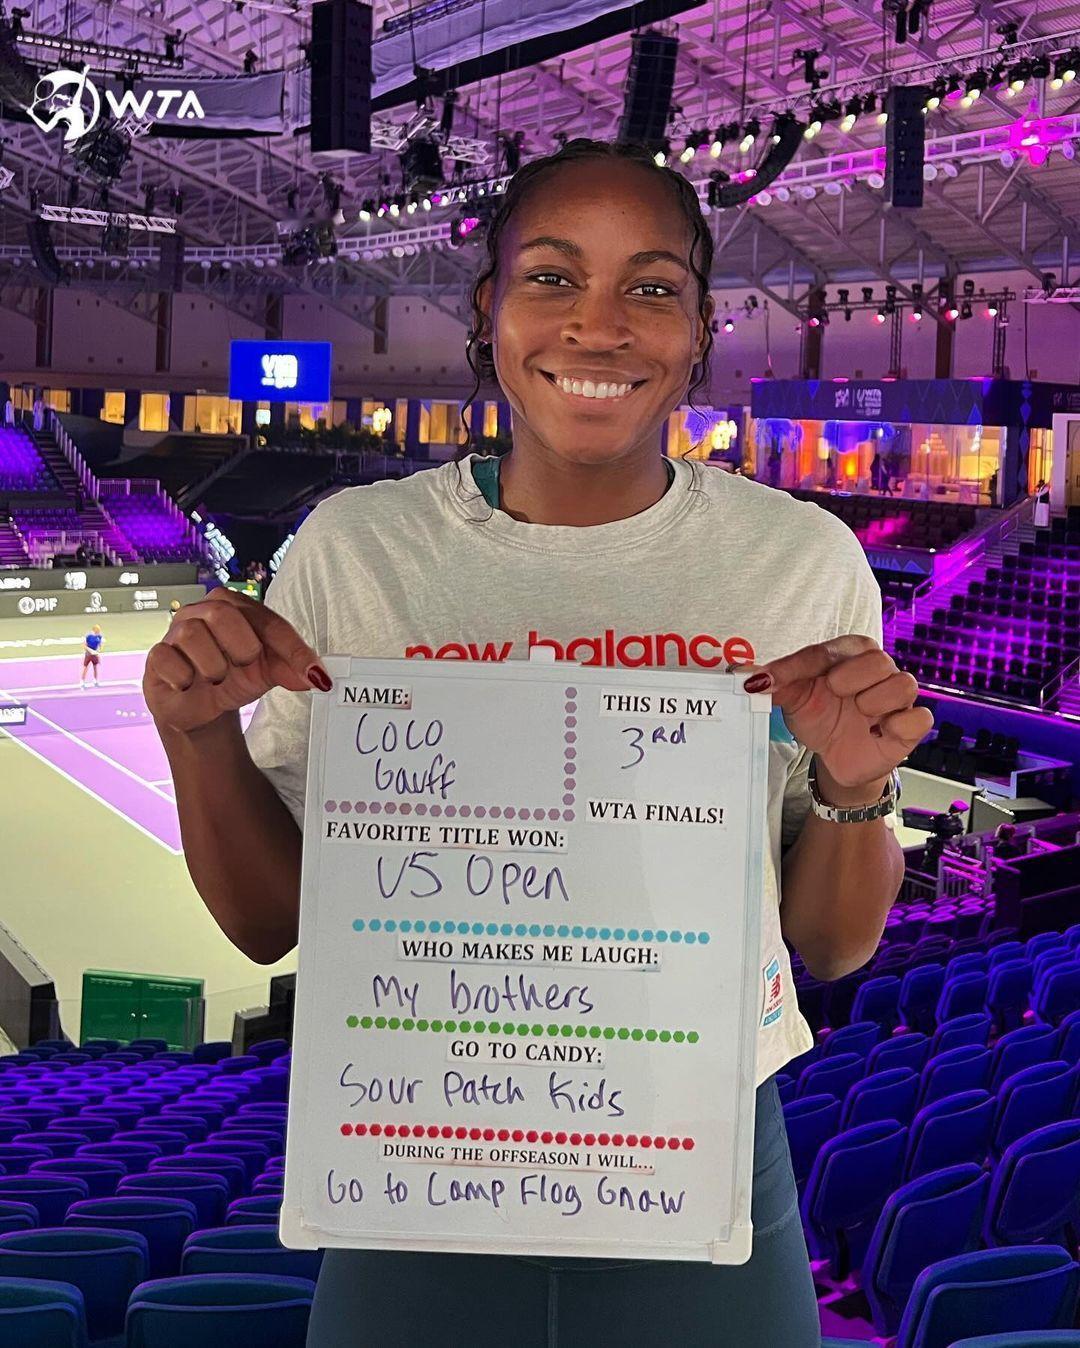 WTA
PIF
new balance
NAME:
COCO
Gauff
THIS IS MY
3rd
WTA FINALS!
FAVORITE TITLE WON:
US Open
WHO MAKES ME LAUGH:
My brothers
GO TO CANDY:
Sour Patch Kids
DURING THE OFFSEASON I WILL...
Go to Camp Flog Gnaw